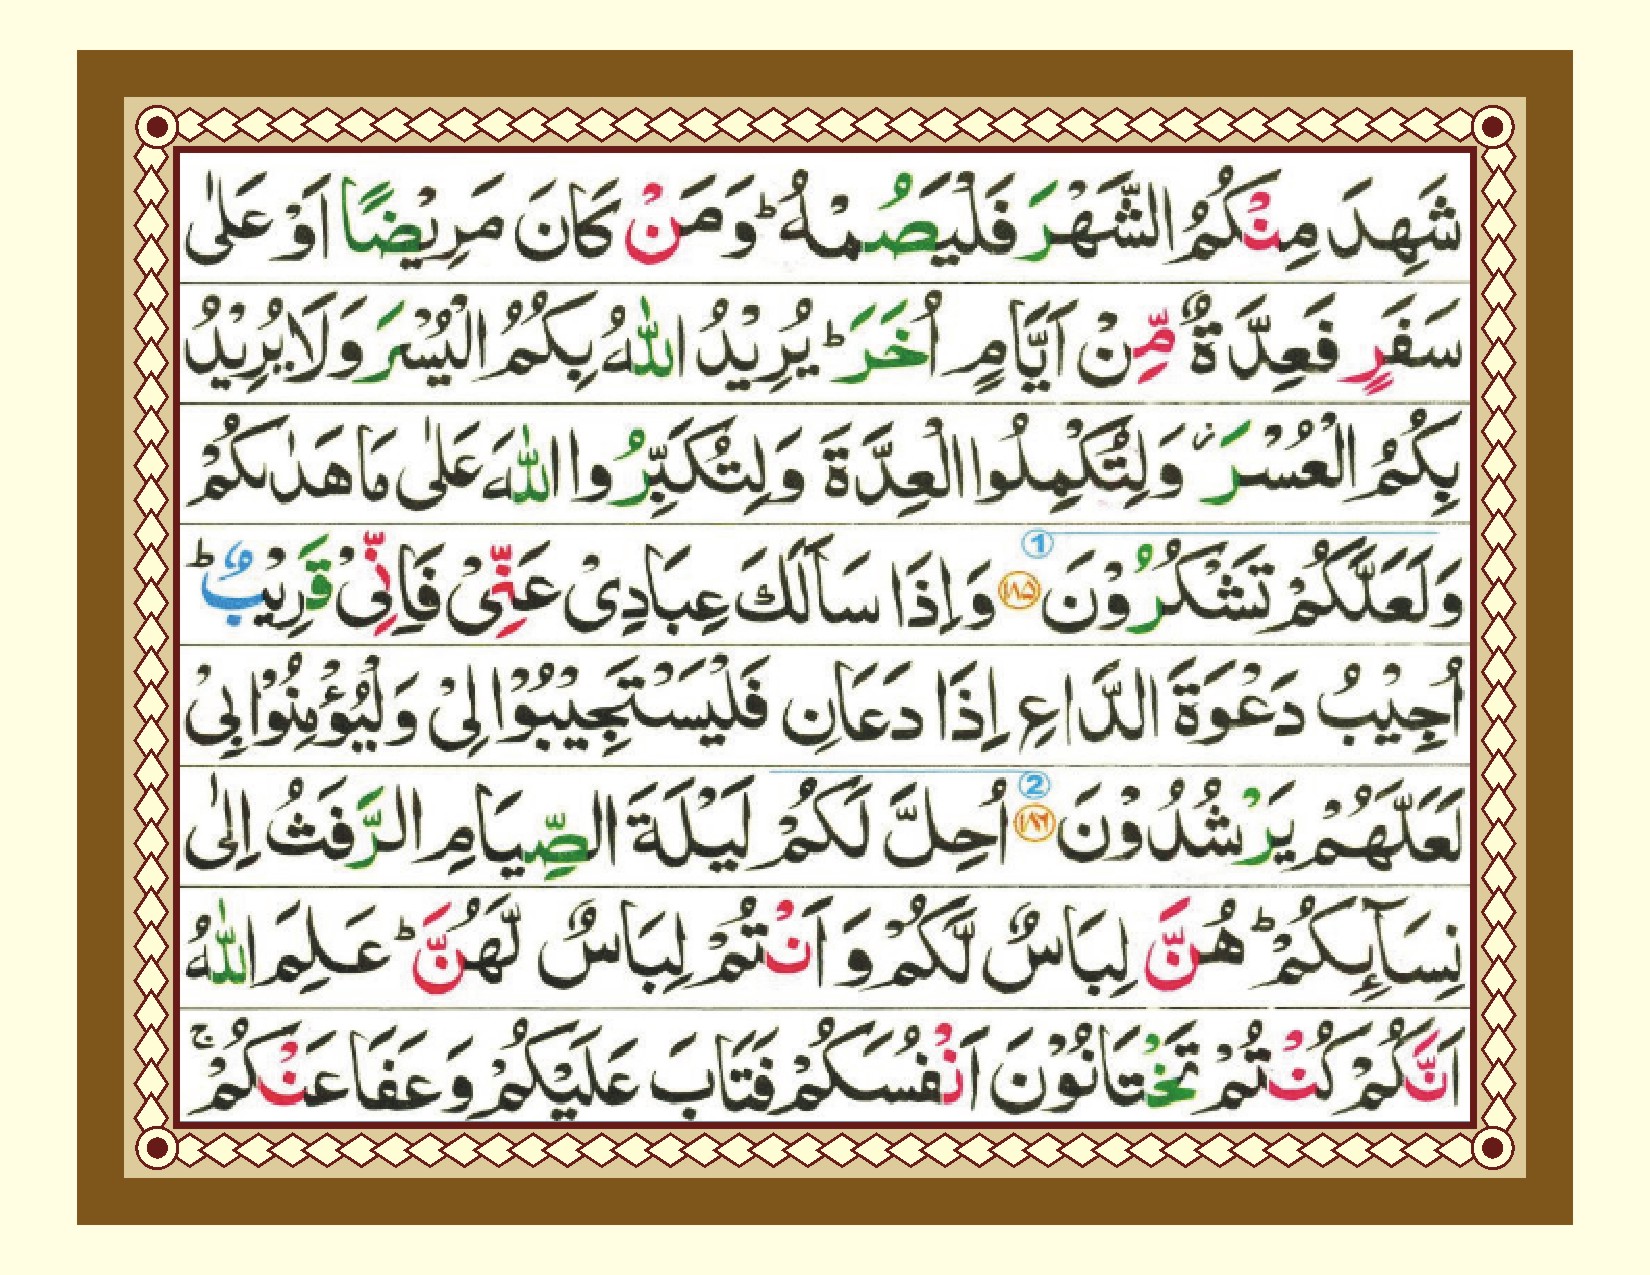 شَهِدَ مِنْكُمُ الشَّهْرَ فَلْيَصُمْهُ ؕ وَمَنْ كَانَ مَرِيْضًا اَوْ عَلٰى
سَفَرٍ فَعِدَّةٌ مِّنْ اَيَّامٍ اُخَرَ ؕ يُرِيْدُ اللّٰهُ بِكُمُ الْيُسْرَ وَلَا يُرِيْدُ
بِكُمُ الْعُسْرَ ؗ وَلِتُكْمِلُوا الْعِدَّةَ وَلِتُكَبِّرُوا اللّٰهَ عَلٰى مَا هَدٰىكُمْ
وَلَعَلَّكُمْ تَشْكُرُوْنَ ① ﴿۱۸۵﴾ وَاِذَا سَاَلَكَ عِبَادِىْ عَنِّىْ فَاِنِّىْ قَرِيْبٌ ؕ
اُجِيْبُ دَعْوَةَ الدَّاعِ اِذَا دَعَانِ فَلْيَسْتَجِيْبُوْا لِىْ وَلْيُؤْمِنُوْا بِىْ
لَعَلَّهُمْ يَرْشُدُوْنَ ② ﴿۱۸۶﴾ اُحِلَّ لَكُمْ لَيْلَةَ الصِّيَامِ الرَّفَثُ اِلٰى
نِسَآئِكُمْ ؕ هُنَّ لِبَاسٌ لَّكُمْ وَ اَنْتُمْ لِبَاسٌ لَّهُنَّ ؕ عَلِمَ اللّٰهُ
اَنَّكُمْ كُنْتُمْ تَخْتَانُوْنَ اَنْفُسَكُمْ فَتَابَ عَلَيْكُمْ وَعَفَا عَنْكُمْ ۚ